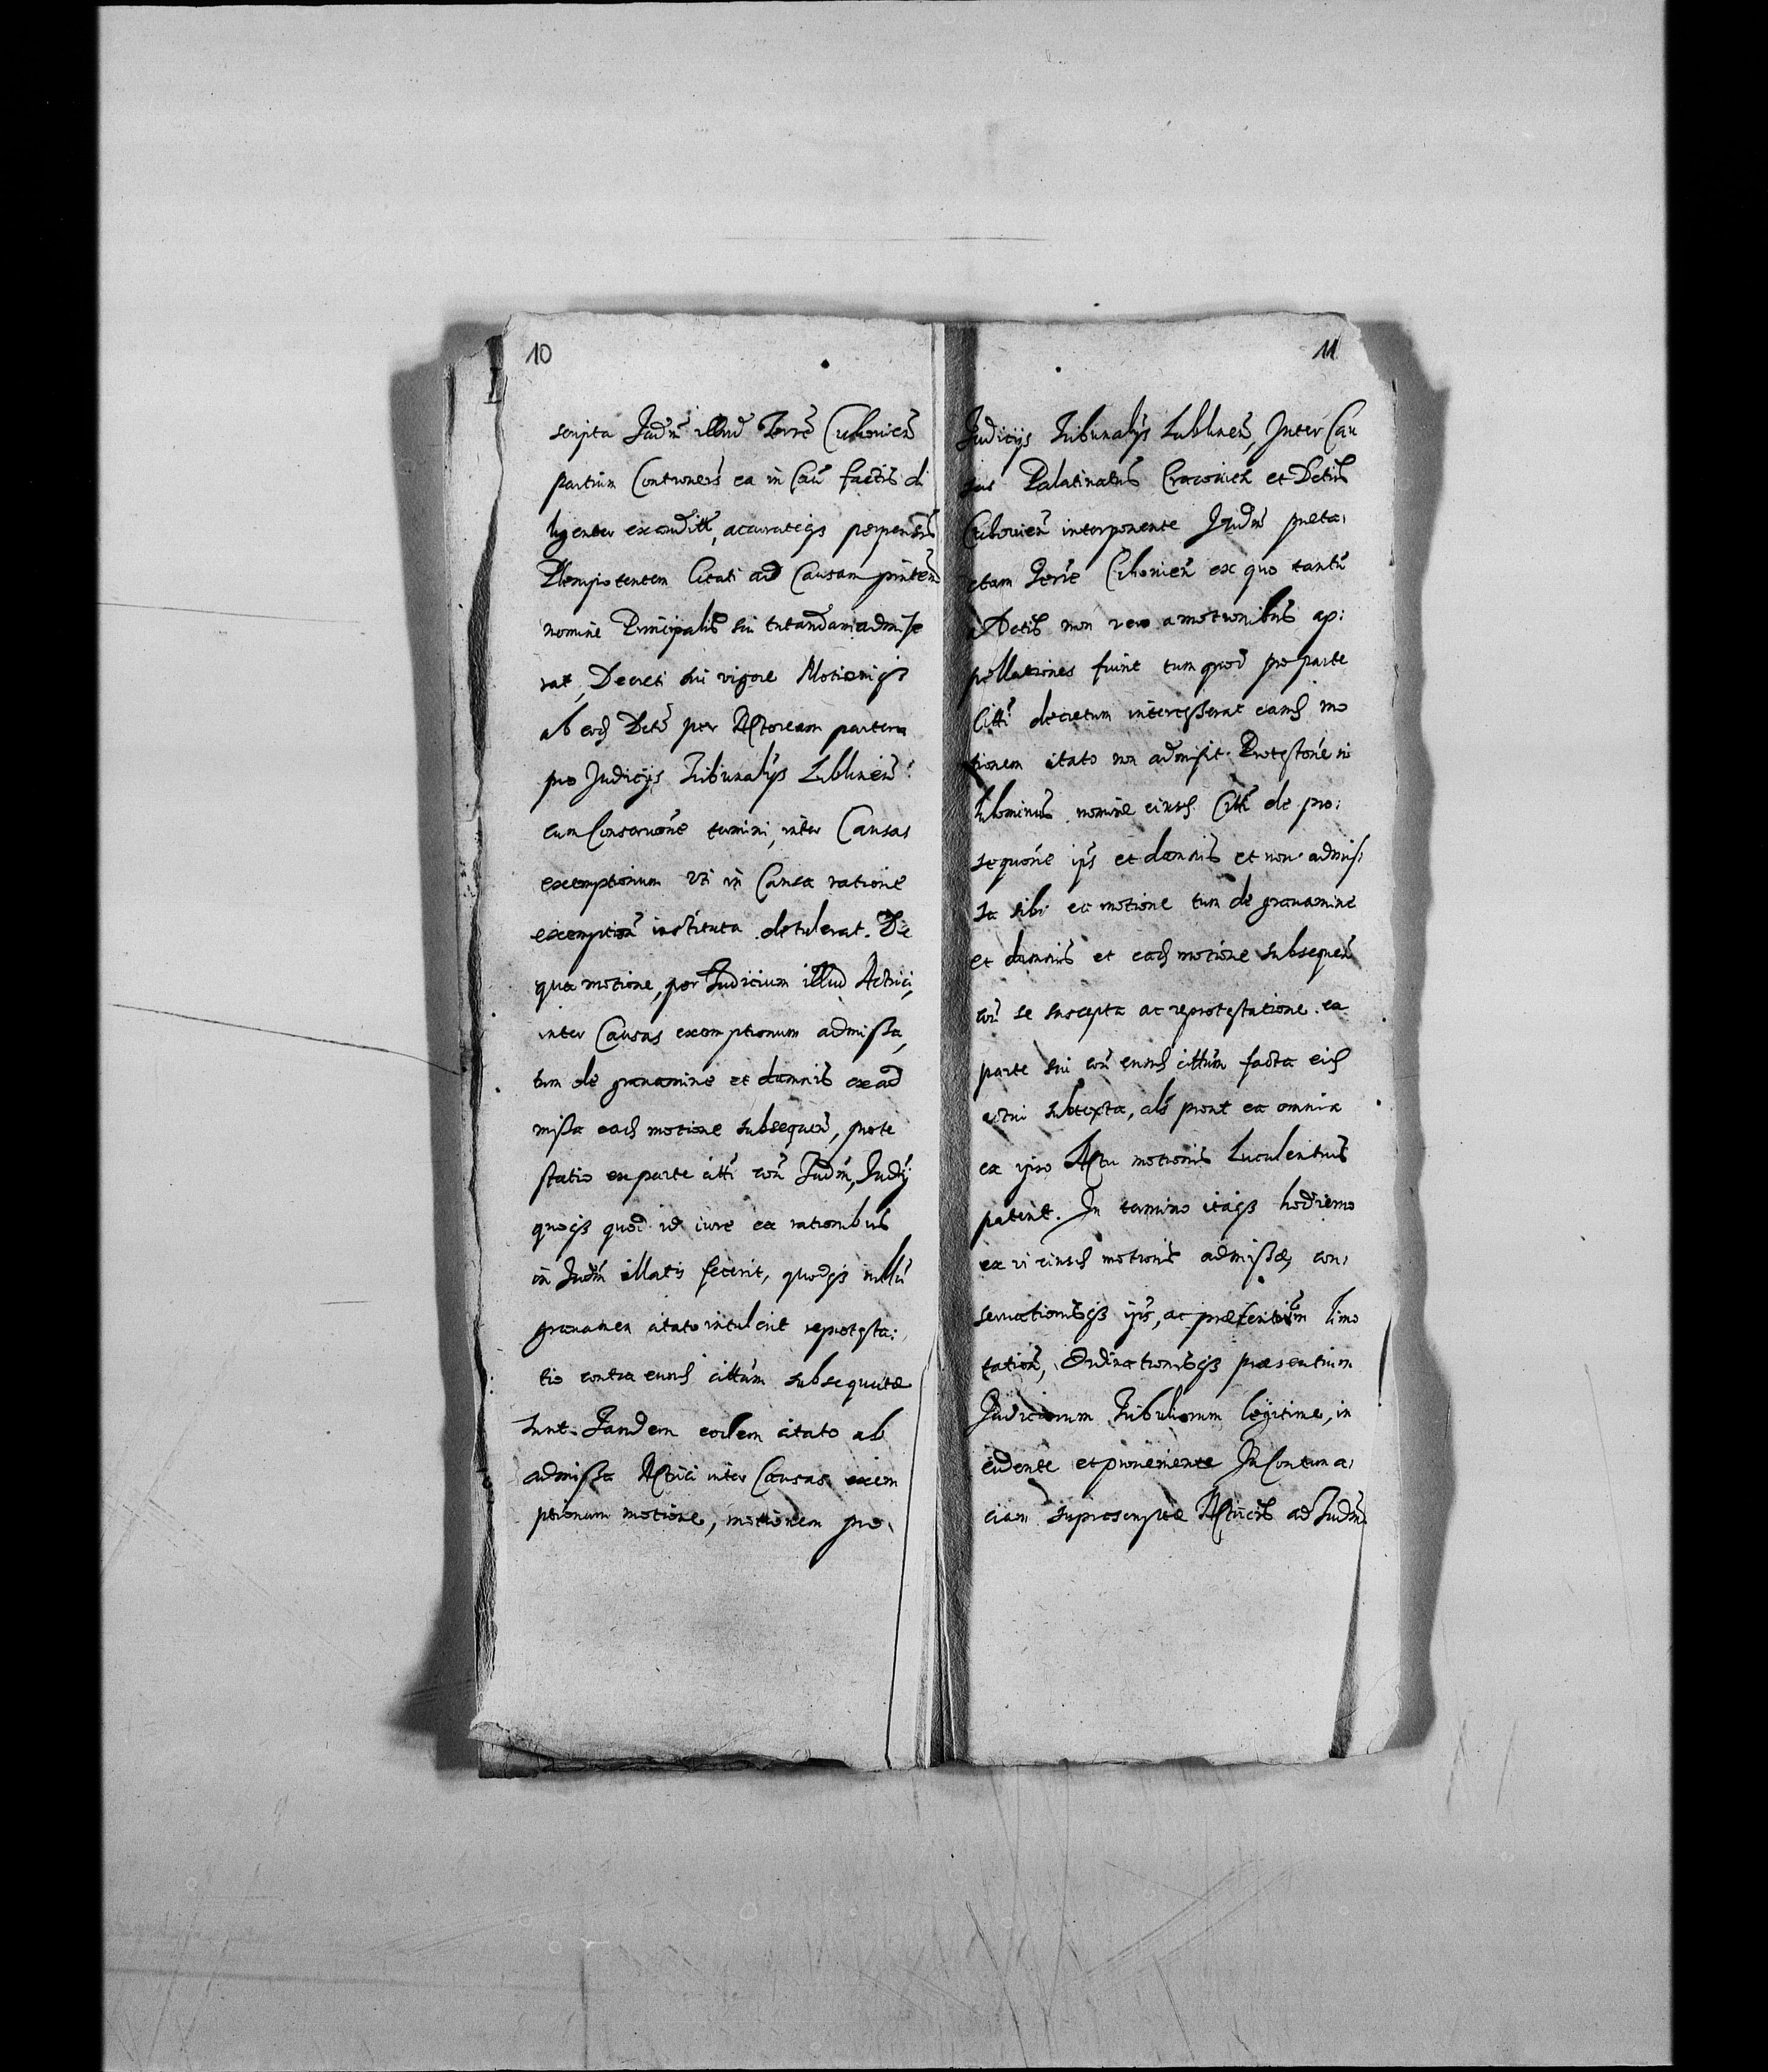 10
scripta Judm̃ illud Terrẽ Cichouieñ
partium Controuers̃ ea in Cauã factis di
ligenter exauditis, accurateqs perpensis
Plenipotentem Citati ad Causam pñtem
nomine Principalis sui tutandam admise
rat, Decreti sui vigore Motionẽqs
ab eod Detõ per Actoream partem
pro Judicijs Tribunalijs Lublineñ:
cum Conseruõne termini, inter Causas
exemptionum uti in Causa ratione
exemption̄ instituta detulerat. De
qua motione, per Judicium illud Actrici,
inter Causas exemptionum admissa,
tum de grauamine et damnis ex ad
missa eade motione subsequeñ, prote
statio ex parte citti con̄ Judm̃, Judij
quoqs quod id iure ea rationibus
in Judm̃ illatis fecerit, quodqs nullũ
grauamen citato intulerit reprotesta:
tio contra eund cittum subsequutæ
sunt. Tandem eodem citato ab
admissa Actrici inter Causas exem
ptionum motione, motionem pro
11
Judicijs Tribunalijs Lublineñ, Inter Cau
sas Palatinatus Cracouieñ et Dctus
Cichouieñ interponente Judm̃ præta:
ctum Terrẽ Cichouieñ ex quo tantũ
a Dctis non vero a motionibus ap:
pellationes fiunt tum quod pro parte
Citti decretum intercesserat eand mo
tionem citato non admisit. Protestõne ni
hilominus nomine eiusd Citti de pro:
sequõne ips et damnis et non admis:
sa sibi ea motione tum de grauamine
et damnis et eade motione subsequeñ
con̄ se suscepta ac reprotestatione ea
parte sui con̄ eund cittum facta eid
actui subtexta, als prout ea omnia
ex ipso Actu motionis luculentius
patent. In termino itaqs hodierno
ex vi eiusd motionis admissæ, con:
seruationisqs ips, ac præsentium limi
tation̄, Ordinationisqs præsentium
Judiciorum Tribuliorum legitime, in
cidente et proueniente In Contuma:
ciam suprascriptæ Actricis ad Judm̃